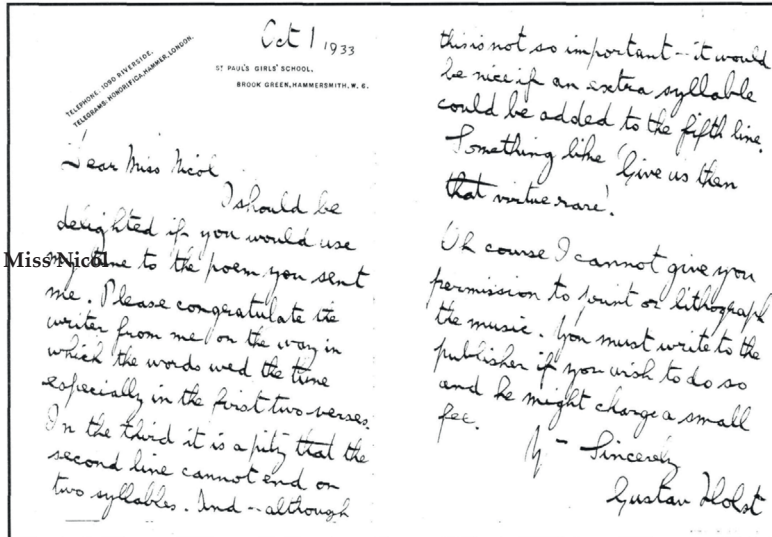 Oct 1 1933
TELEPHONE: 1090 RIVERSIDE.
TELEGRAMS: HONORIFICA, HAMMER, LONDON.
ST PAUL'S GIRLS' SCHOOL,
BROOK GREEN, HAMMERSMITH, W. 6.
Dear Miss Nicol
I should be
delighted if you would use
my tune to the poem you sent
Miss Nicol
me. Please congratulate the
writer from me on the way in
which the words wed the tune
especially in the first two verses.
In the third it is a pity that the
second line cannot end on
two syllables. And -- although
this is not so important -- it would
be nice if an extra syllable
could be added to the fifth line.
Something like 'Give us then
that virtue rare'.
Of course I cannot give you
permission to print or lithograph
the music. You must write to the
publisher if you wish to do so
and he might charge a small
fee.
Sincerely
Gustav Holst